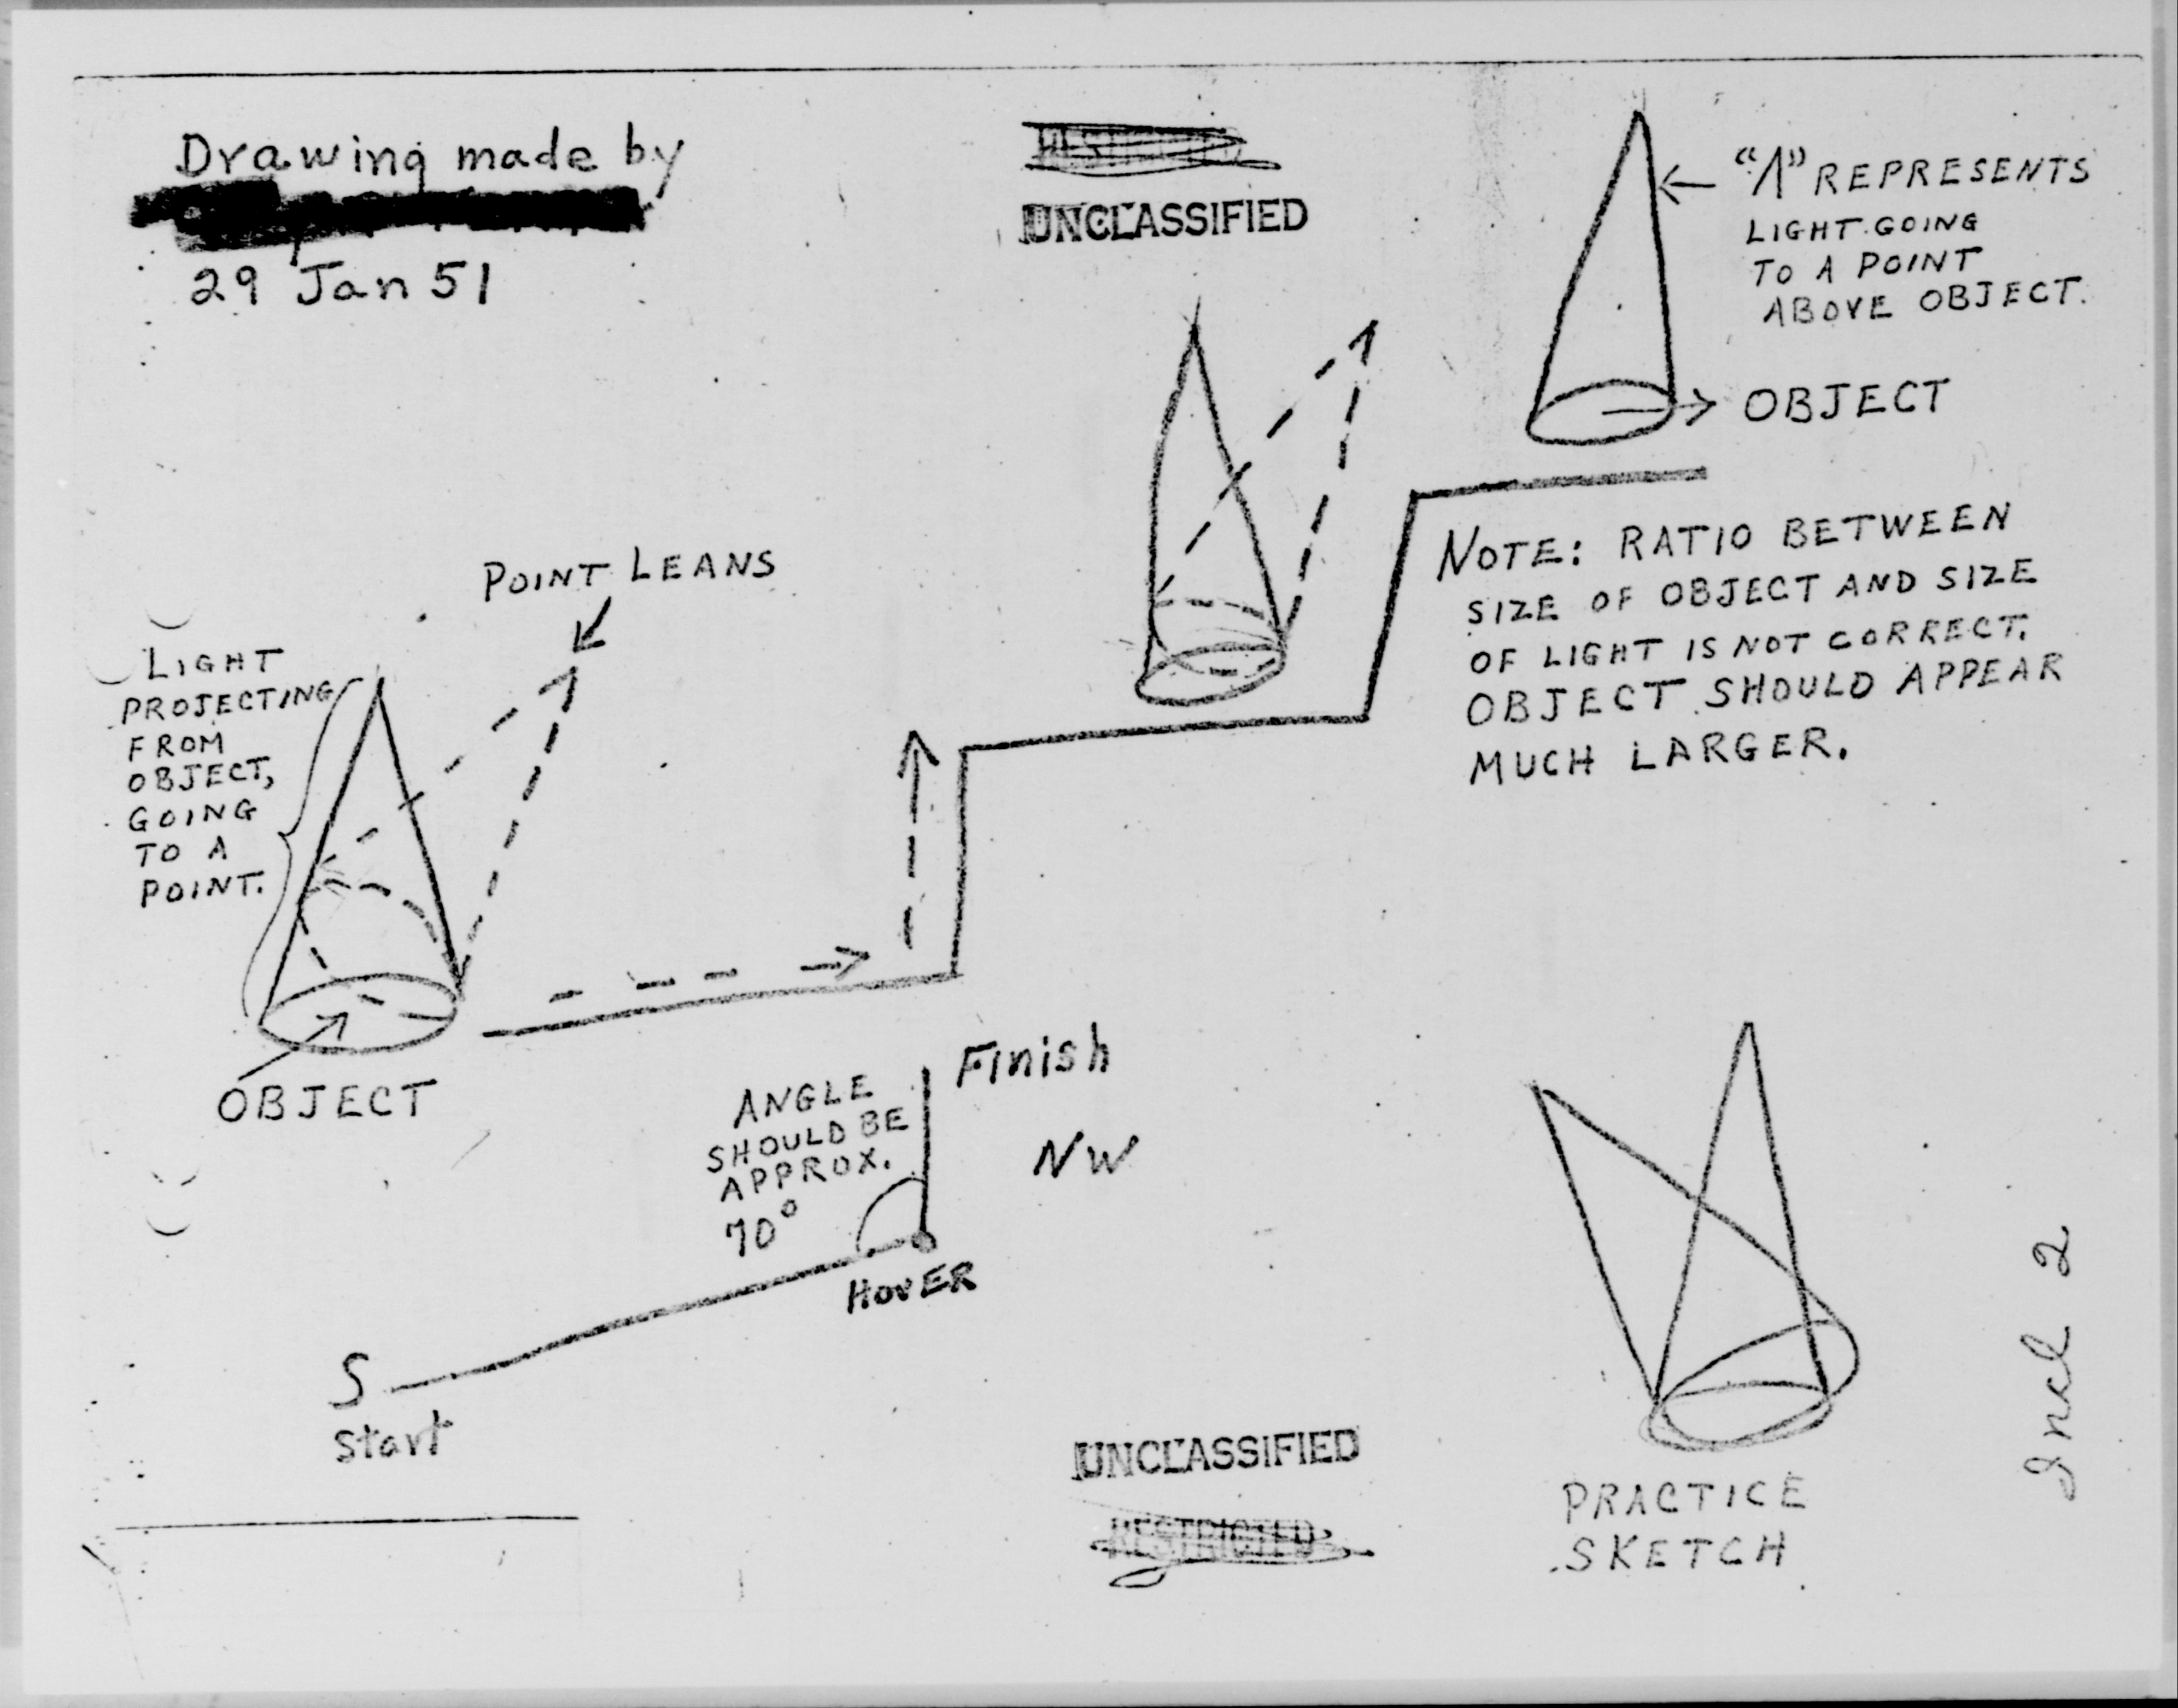 Drawing made by
29 Jan 51
RESTRICTED
UNCLASSIFIED
"Λ" REPRESENTS
LIGHT GOING
TO A POINT
ABOVE OBJECT.
OBJECT
NOTE: RATIO BETWEEN
SIZE OF OBJECT AND SIZE
OF LIGHT IS NOT CORRECT.
OBJECT SHOULD APPEAR
MUCH LARGER.
POINT LEANS
LIGHT
PROJECTING
FROM
OBJECT,
GOING
TO A
POINT.
OBJECT
ANGLE
SHOULD BE
APPROX.
70°
Finish
NW
HOVER
S
Start
UNCLASSIFIED
RESTRICTED
PRACTICE
SKETCH
Incl 2